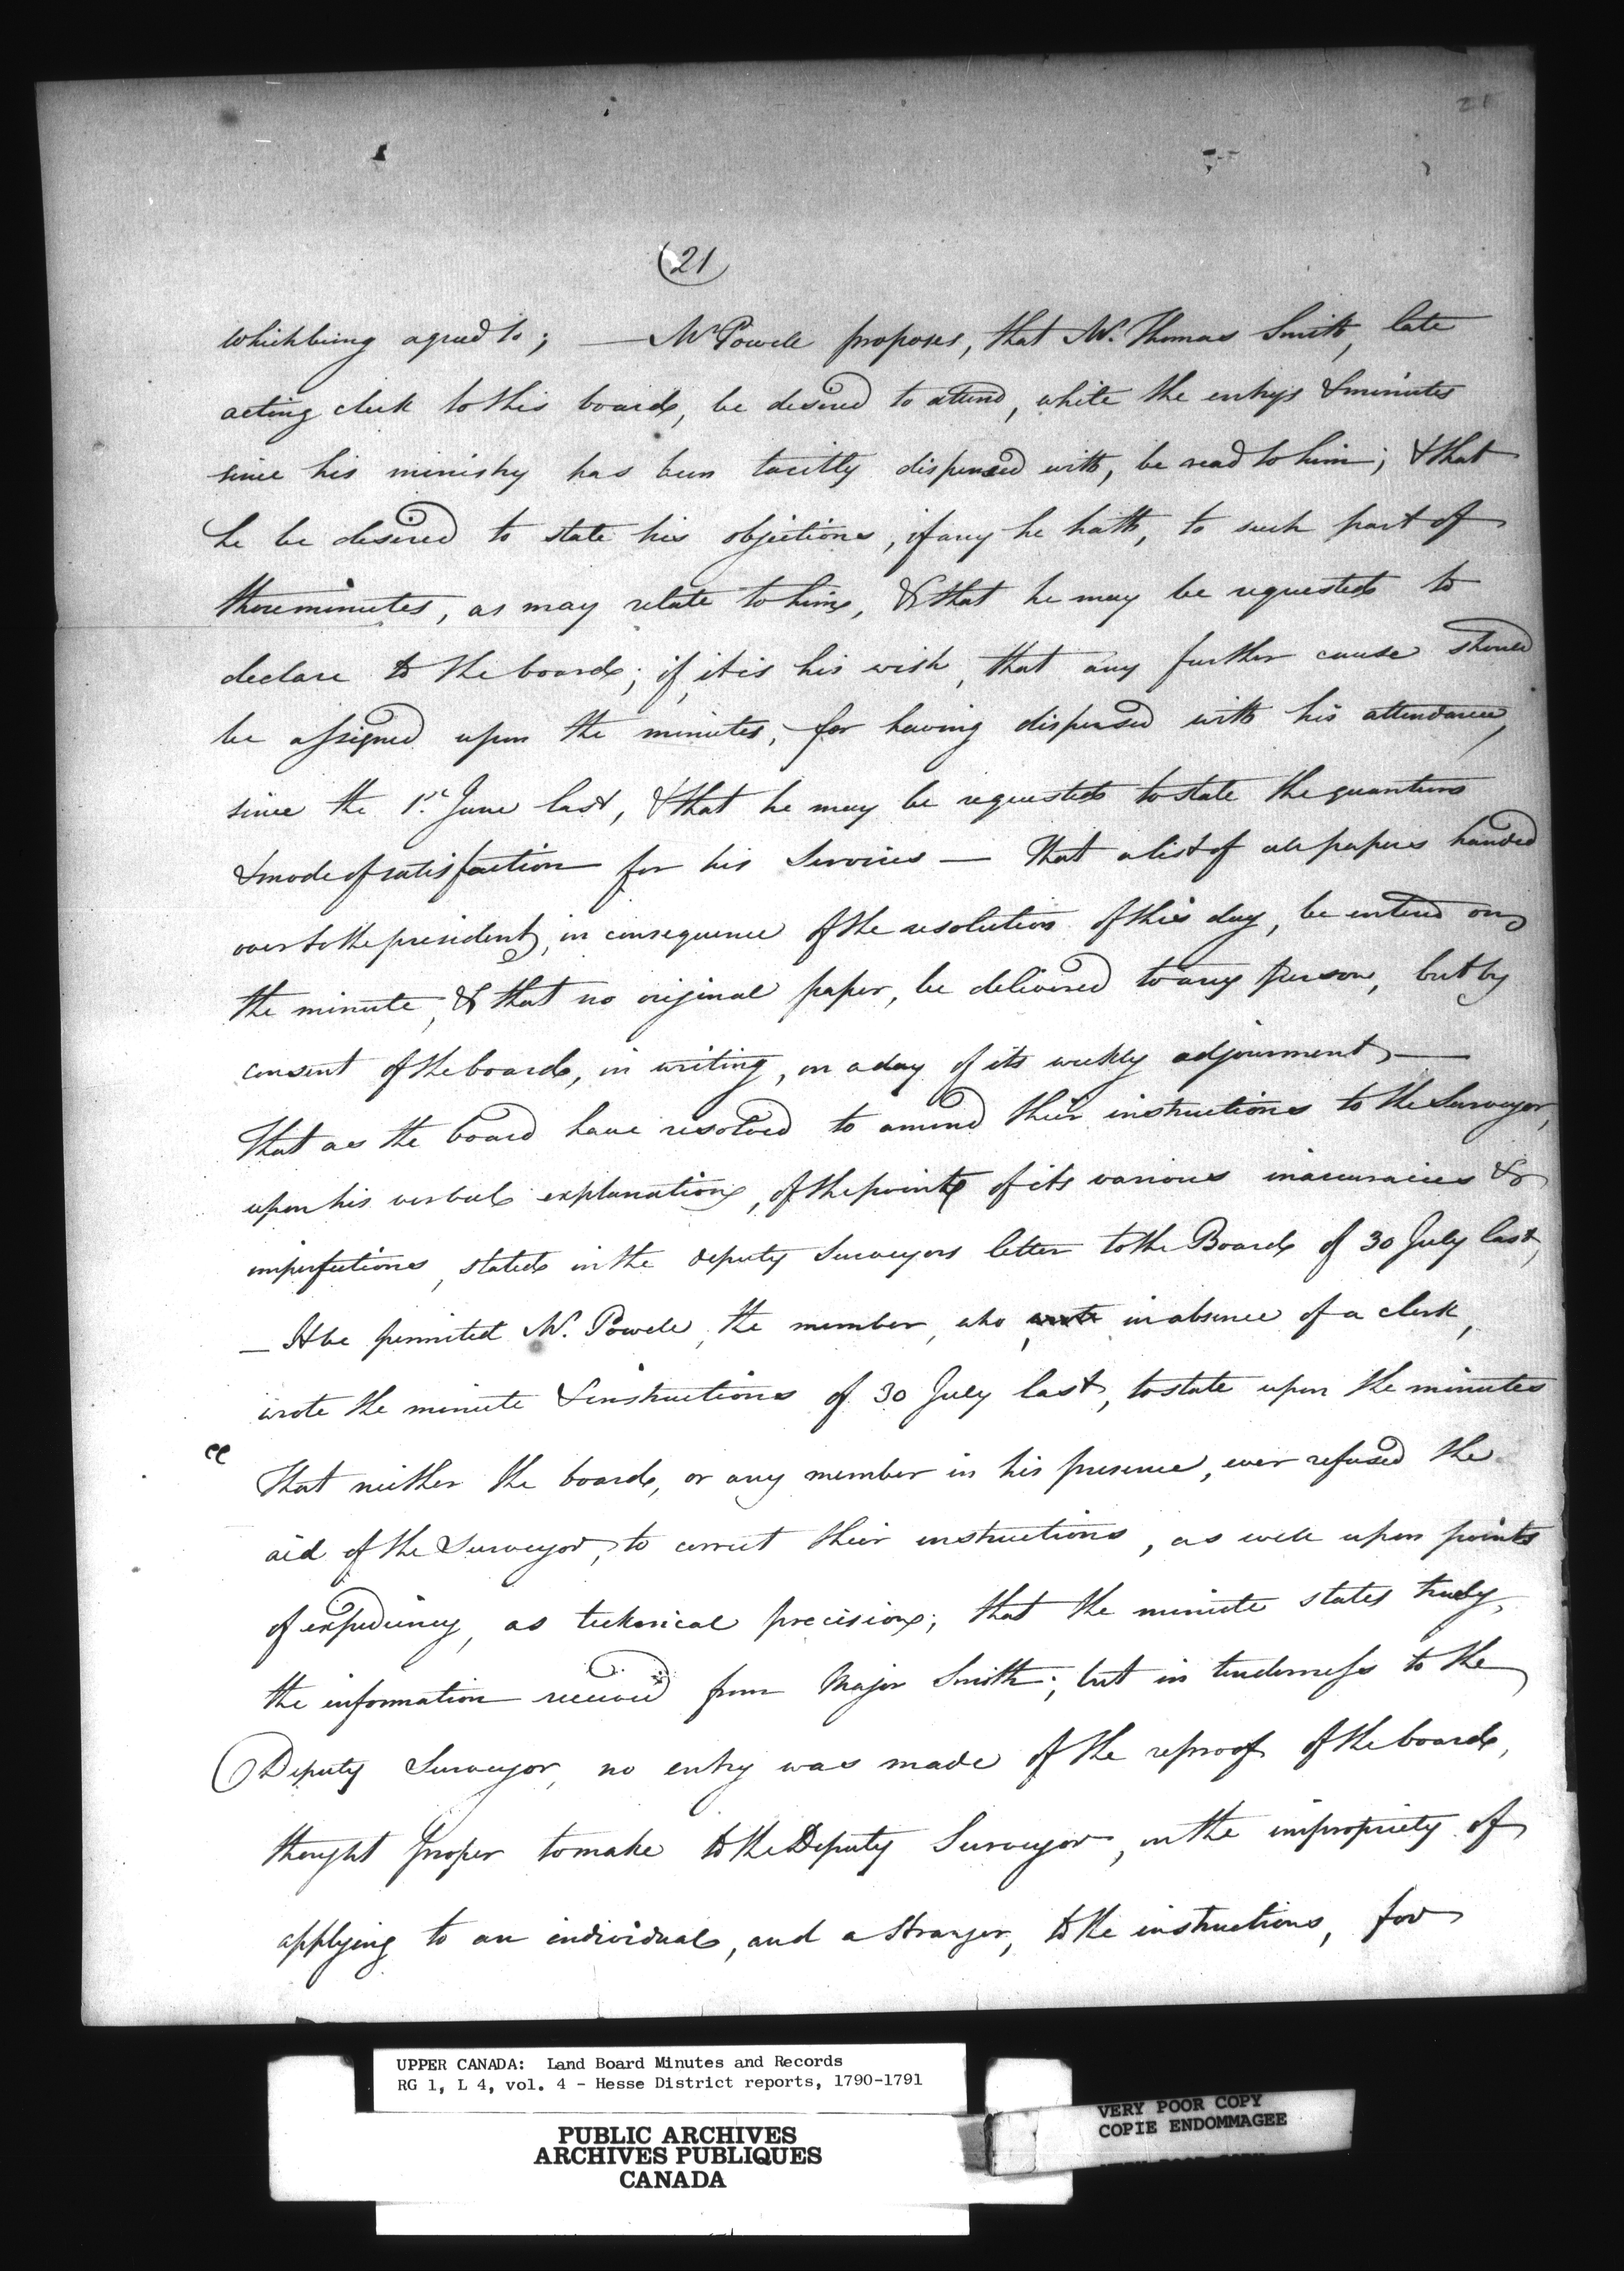 21
(21)
which being agreed to; — Mr Powell proposes, that Mr. Thomas Smith, late
acting clerk to this board, be desired to attend, while the entrys & minutes
since his ministry has been tacitly dispensed with, be read to him; & that
he be desired to state his objections, if any he hath, to such part of
those minutes, as may relate to him, & that he may be requested to
declare to the board; if it is his wish, that any further cause should
be assigned upon the minutes, for having dispensed with his attendance,
since the 1st June last, & that he may be requested to state the quantum
& mode of satisfaction for his Services — That a list of all papers handed
over to the president, in consequence of the resolution of this day, be entered on
the minute, & that no original paper, be delivered to any person, but by
consent of the board, in writing, on a day of its weekly adjournment, —
That as the board have resolved to amend their instructions to the Surveyor,
upon his verbal explanation, of the points of its various inaccuracies &
imperfections, stated in the deputy Surveyors letter to the Board of 30 July last,
— It be permitted Mr. Powell, the member, who wrote in absence of a clerk,
wrote the minute & instructions of 30 July last, to state upon the minutes
“ That neither the board, or any member in his presence, ever refused the
aid of the Surveyor, to correct their instructions, as well upon points
of expediency, as technical precision; that the minute states truly,
the information received from Major Smith; but in tenderness to the
Deputy Surveyor, no entry was made of the reproof of the board,
thought proper to make to the Deputy Surveyor, on the impropriety of
applying to an individual, and a stranger, to the instructions, for
UPPER CANADA: Land Board Minutes and Records
RG 1, L 4, vol. 4 - Hesse District reports, 1790-1791
PUBLIC ARCHIVES
ARCHIVES PUBLIQUES
CANADA
VERY POOR COPY
COPIE ENDOMMAGEE